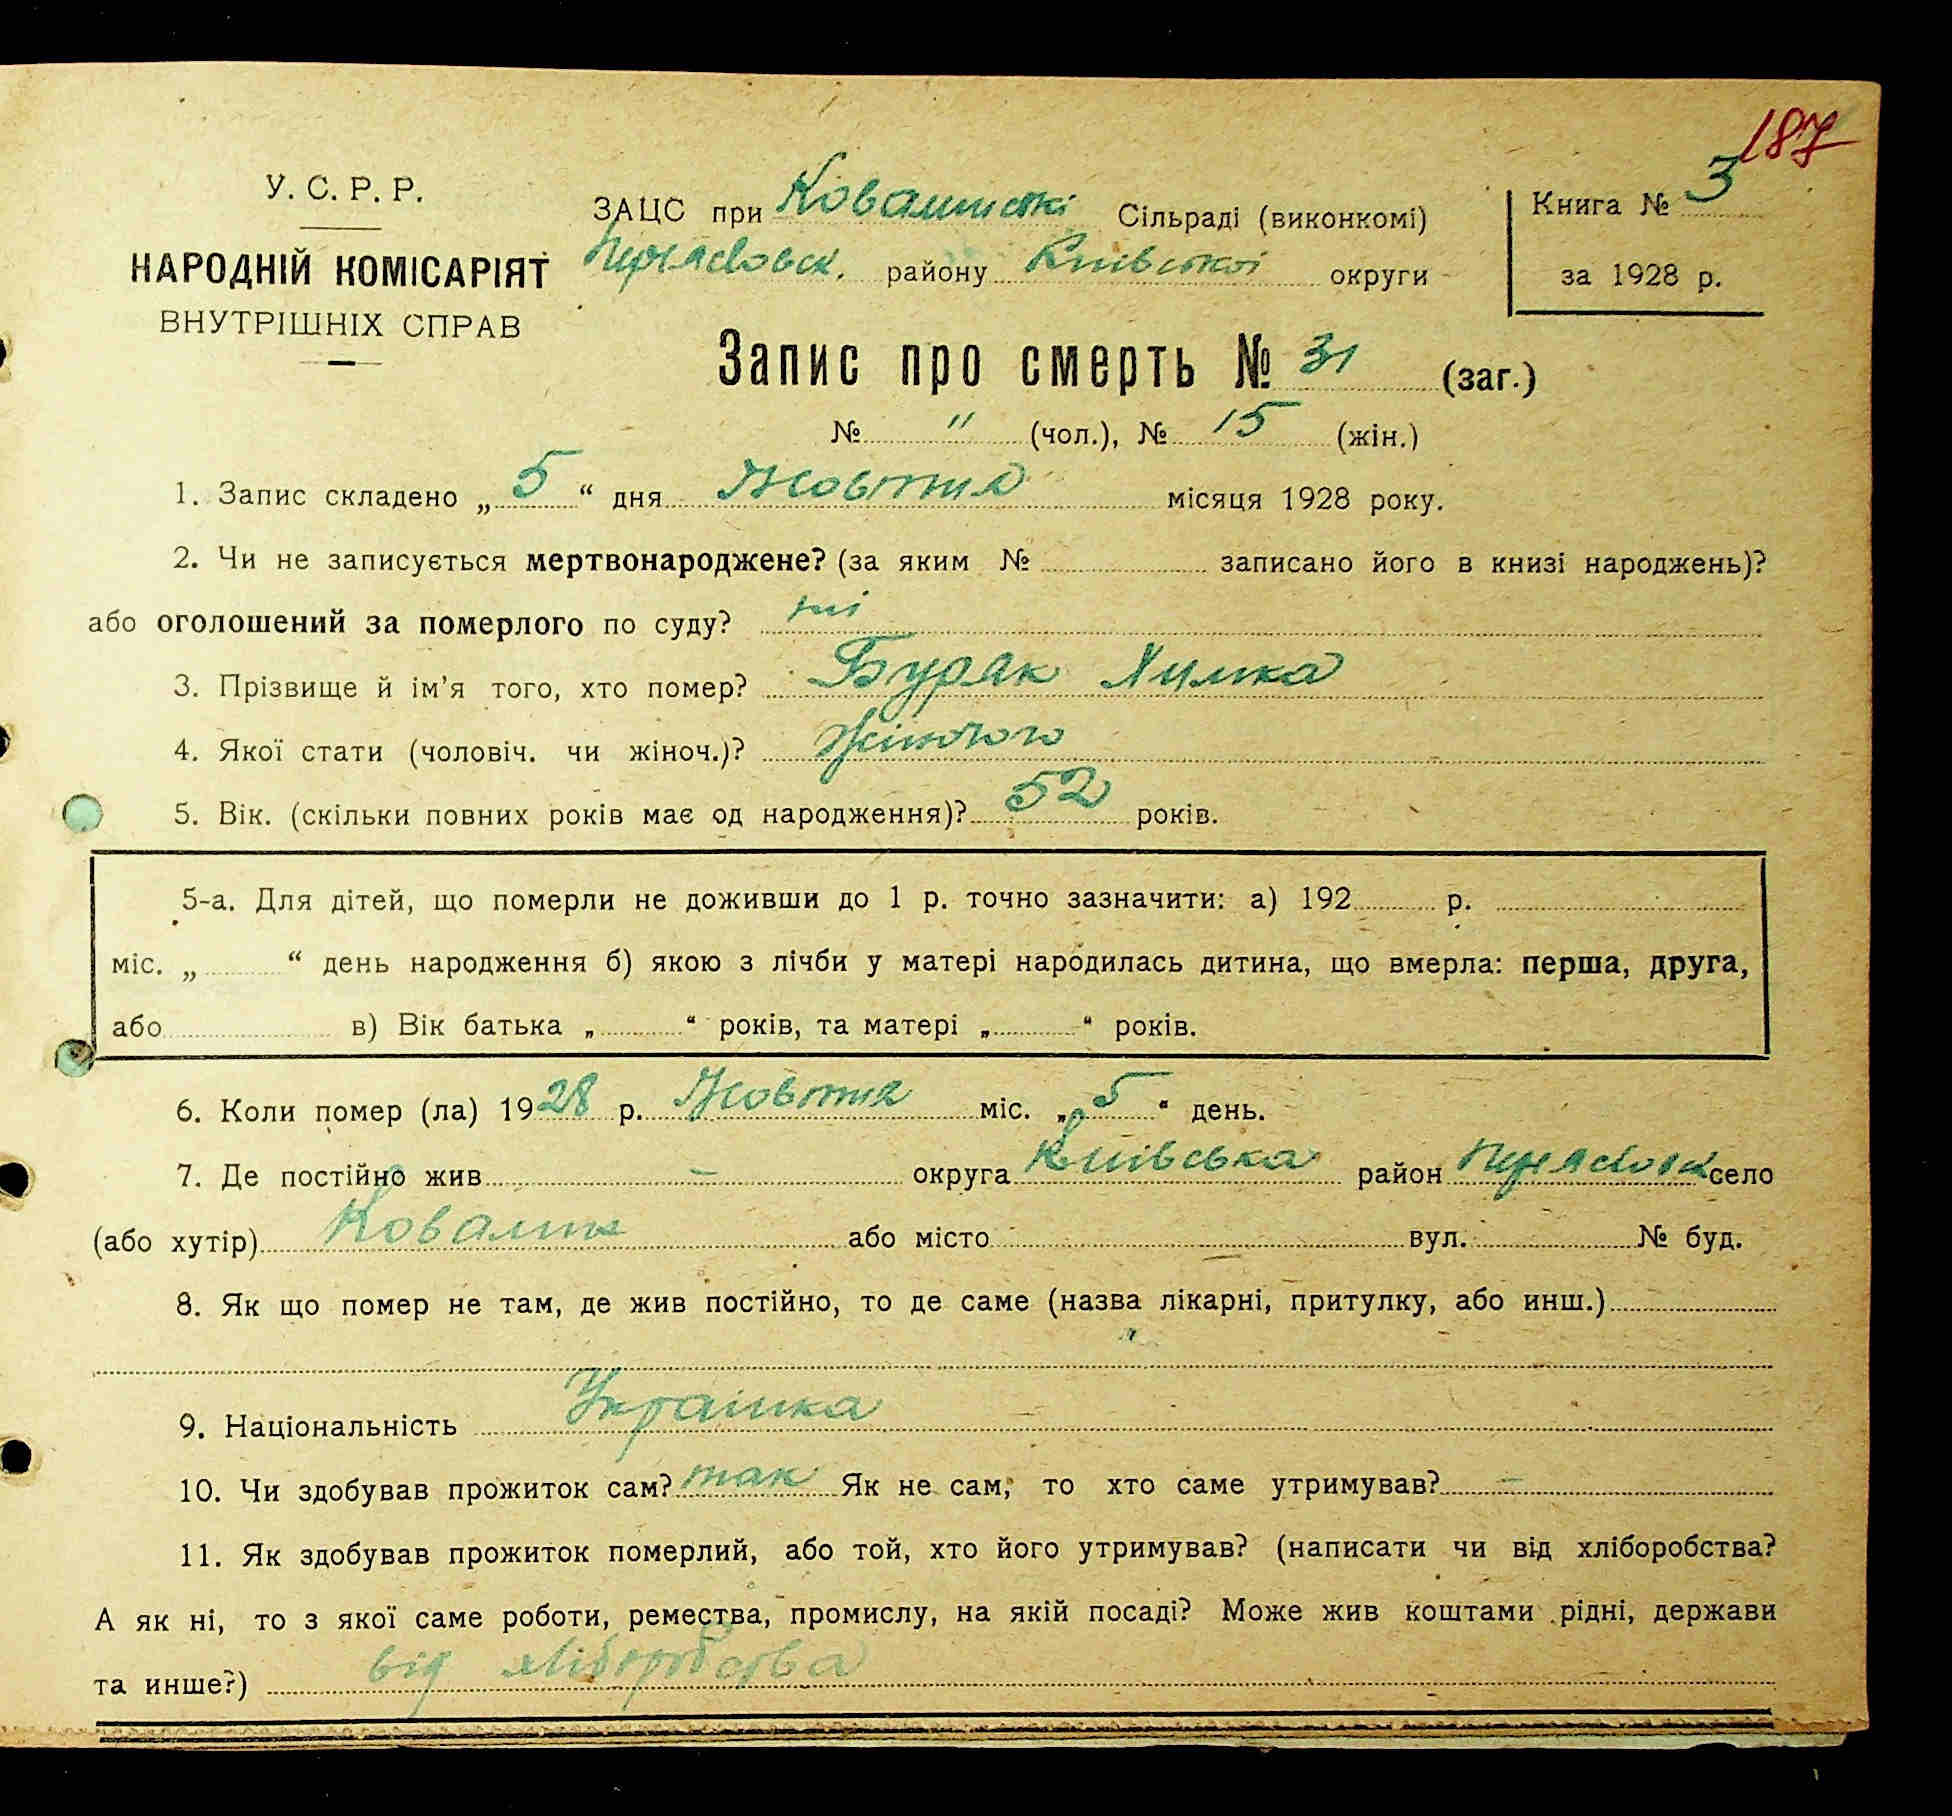 187
У. С. Р. Р.
НАРОДНІЙ КОМІСАРІЯТ
ВНУТРІШНІХ СПРАВ
ЗАЦС при Ковалинській Сільраді (виконкомі)
Переясловск. району Київської округи
Книга № 3
за 1928 р.
Запис про смерть № 31 (заг.)
№ " (чол.), № 15 (жін.)
1. Запис складено „ 5 “ дня Жовтня місяця 1928 року.
2. Чи не записується мертвонароджене? (за яким № записано його в книзі народжень)?
або оголошений за померлого по суду? ні
3. Прізвище й ім'я того, хто помер? Буряк Химка
4. Якої стати (чоловіч. чи жіноч.)? Жіночого
5. Вік. (скільки повних років має од народження)? 52 років.
5-а. Для дітей, що померли не доживши до 1 р. точно зазначити: а) 192 р.
міс. „ “ день народження б) якою з лічби у матері народилась дитина, що вмерла: перша, друга,
або в) Вік батька „ “ років, та матері „ “ років.
6. Коли помер (ла) 1928 р. Жовтня міс. „ 5 “ день.
7. Де постійно жив – округа Київська район Переясловск село
(або хутір) Ковалин або місто вул. № буд.
8. Як що помер не там, де жив постійно, то де саме (назва лікарні, притулку, або инш.)
"
9. Національність Українка
10. Чи здобував прожиток сам? так Як не сам, то хто саме утримував? –
11. Як здобував прожиток померлий, або той, хто його утримував? (написати чи від хліборобства?
А як ні, то з якої саме роботи, ремества, промислу, на якій посаді? Може жив коштами рідні, держави
та инше?) від хліборобства